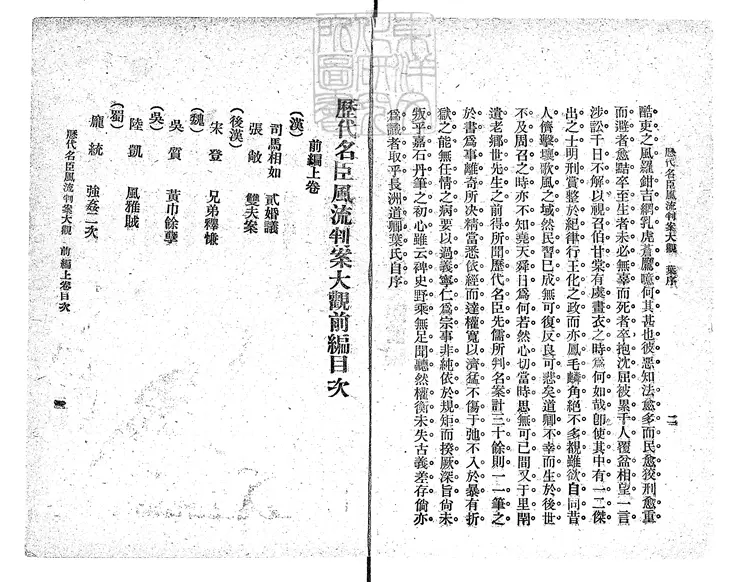 歷代名臣風流判案大觀 葉序
二
酷吏之風羅鉗吉網乳虎蒼鷹噫何其甚也彼惡知法愈多而民愈狡刑愈重
而避者愈黠卒至生者未必無辜而死者卒抱沈屈被累千人覆盆相望一言
涉訟千日不解以視召伯甘棠有虞畫衣之時爲何如哉卽使其中有一二傑
出之士明刑賞整於紀律行王化之政而亦鳳毛麟角絕不多覩雖欲自同昔
人儕擊壤歌風之域然民習已成無可復反良可悲矣道卿不幸而生於後世
不及周召之時亦不知堯天舜日爲何若然心切當時思無可已間又于里閈
遺老鄉世先生之前得所聞歷代名臣先儒所判名案計三十餘則一一筆之
於書爲事離奇所決精當悉依經而達權寬以濟猛不傷于弛不入於暴有折
獄之能無任情之病要以過義寧仁爲宗事非純依於規矩而揆厥深旨尙未
叛乎嘉石丹筆之初心雖云碑史野乘無足聞聽然權衡未失古義差存倘亦
爲識者取乎長洲道卿葉氏自序
歷代名臣風流判案大觀前編目次
前編上卷
(漢)
司馬相如 貳婚議
張敞 雙夫案
(後漢)
宋登 兄弟釋慊
(魏)
吳質 黃巾餘孽
(吳)
陸凱 風雅賊
(蜀)
龐統 強姦二次
歷代名臣風流判案大觀 前編上卷目次